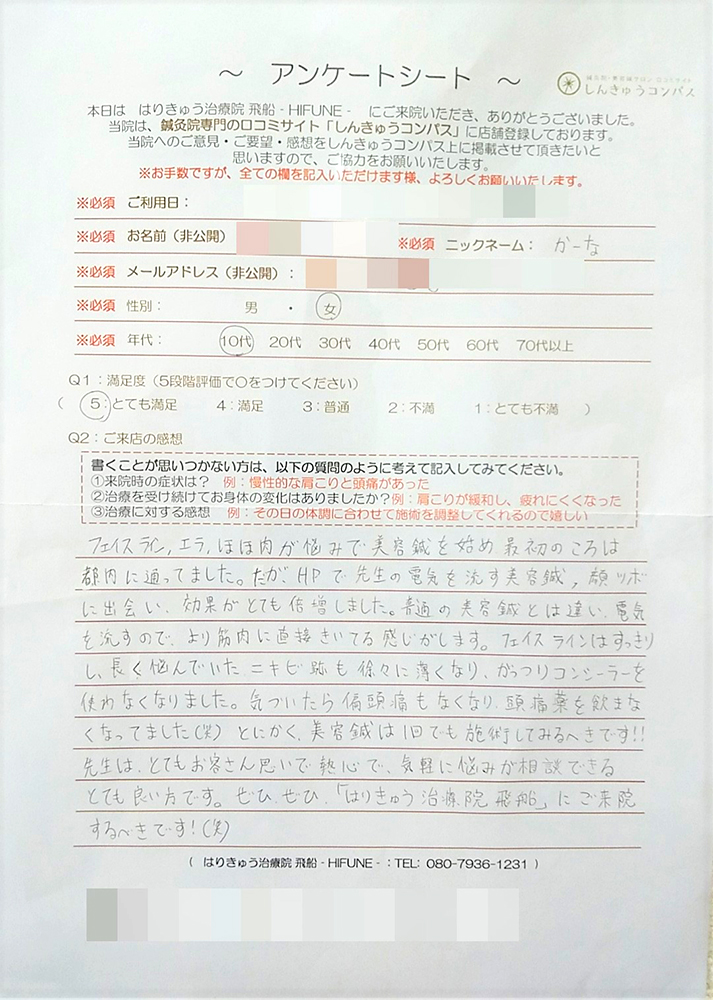 ～ アンケートシート ～
鍼灸院・美容鍼サロン 口コミサイト
しんきゅうコンパス
本日は はりきゅう治療院 飛船 - HIFUNE - にご来院いただき、ありがとうございました。
当院は、鍼灸院専門の口コミサイト「しんきゅうコンパス」に店舗登録しております。
当院へのご意見・ご要望・感想をしんきゅうコンパス上に掲載させて頂きたいと
思いますので、ご協力をお願いいたします。
※お手数ですが、全ての欄を記入いただけます様、よろしくお願いいたします。
※必須 ご利用日：
※必須 お名前（非公開） ※必須 ニックネーム： かーな
※必須 メールアドレス（非公開）：
※必須 性別： 男 ・ 女
※必須 年代： 10代 20代 30代 40代 50代 60代 70代以上
Q1：満足度（5段階評価で〇をつけてください）
（ 5：とても満足 4：満足 3：普通 2：不満 1：とても不満 ）
Q2：ご来店の感想
書くことが思いつかない方は、以下の質問のように考えて記入してみてください。
①来院時の症状は？ 例：慢性的な肩こりと頭痛があった
②治療を受け続けてお身体の変化はありましたか？例：肩こりが緩和し、疲れにくくなった
③治療に対する感想 例：その日の体調に合わせて施術を調整してくれるので嬉しい
フェイスライン,エラ,ほほ肉が悩みで美容鍼を始め、最初のころは
都内に通ってました。だが、HPで先生の電気を流す美容鍼,顔ツボ
に出会い、効果がとても倍増しました。普通の美容鍼とは違い、電気
を流すので、より筋肉に直接きいてる感じがします。フェイスラインはすっきり
し、長く悩んでいたニキビ跡も徐々に薄くなり、がっつりコンシーラーを
使わなくなりました。気づいたら偏頭痛もなくなり、頭痛薬を飲まな
くなってました(笑) とにかく、美容鍼は1回でも施術してみるべきです!!
先生は、とてもお客さん思いで熱心で、気軽に悩みが相談できる
とても良い方です。ぜひ、ぜひ、「はりきゅう治療院飛船」にご来院
するべきです!(笑)
（ はりきゅう治療院 飛船 - HIFUNE - ：TEL: 080-7936-1231 ）